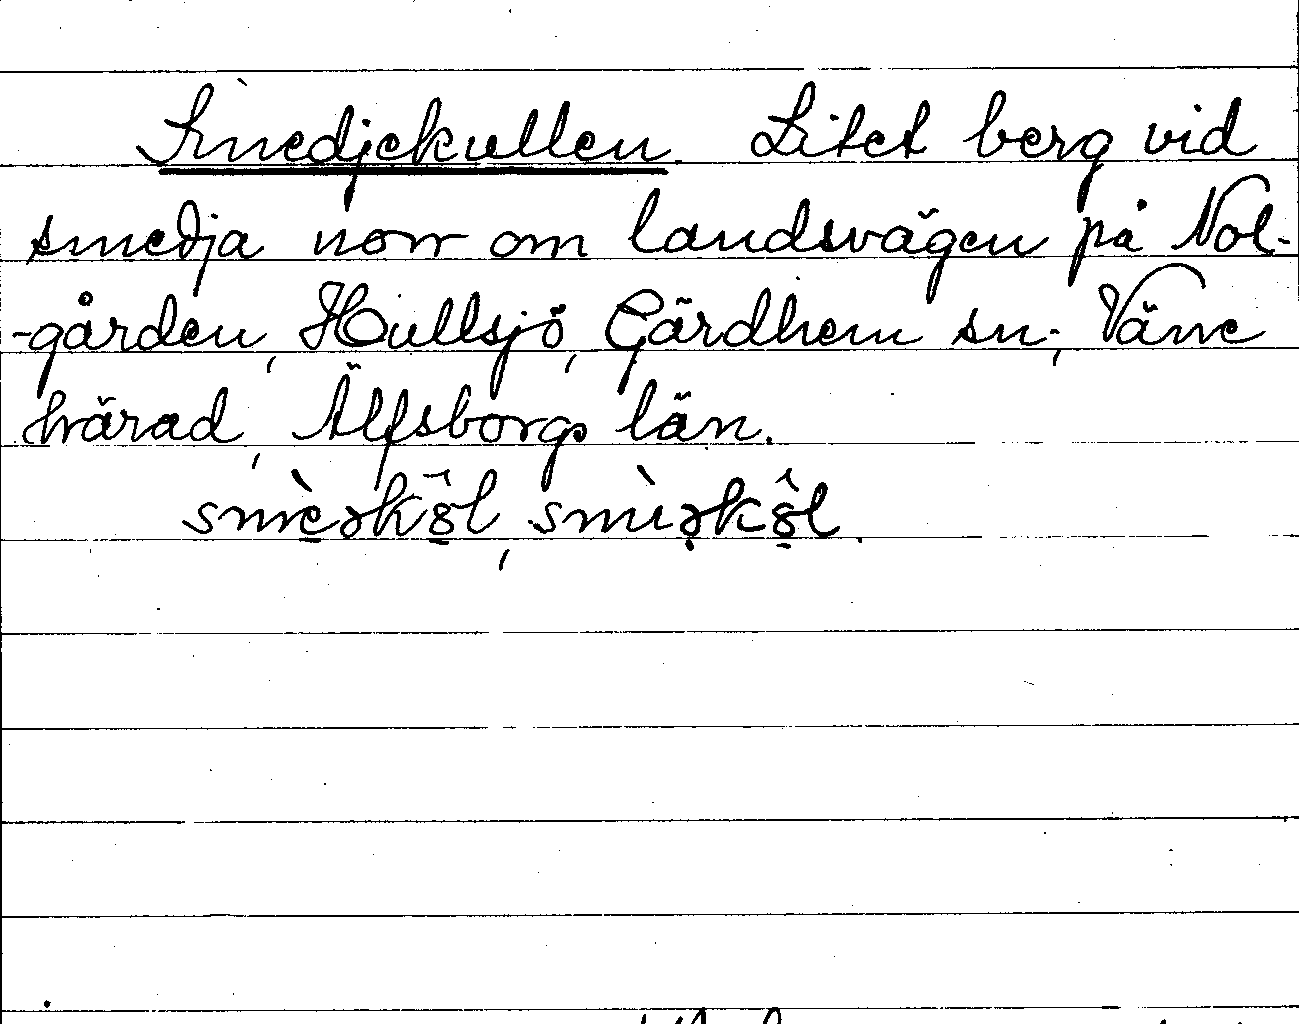 Smedjekullen. Litet berg vid
smedja norr om landsvägen på Nol-
-gården, Hullsjö, Gärdhem sn; Väne
härad, Älfsborgs län.
smèəkôl, smìəkôl.